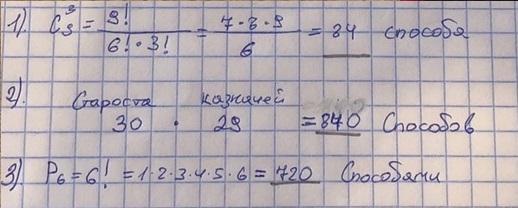 1). C₉³ = 9! / 6!·3! = 7·8·9 / 6 = 84 способа
2). Староста казначей
30 · 29 = 870 Способов
3) P₆ = 6! = 1·2·3·4·5·6 = 720 Способами